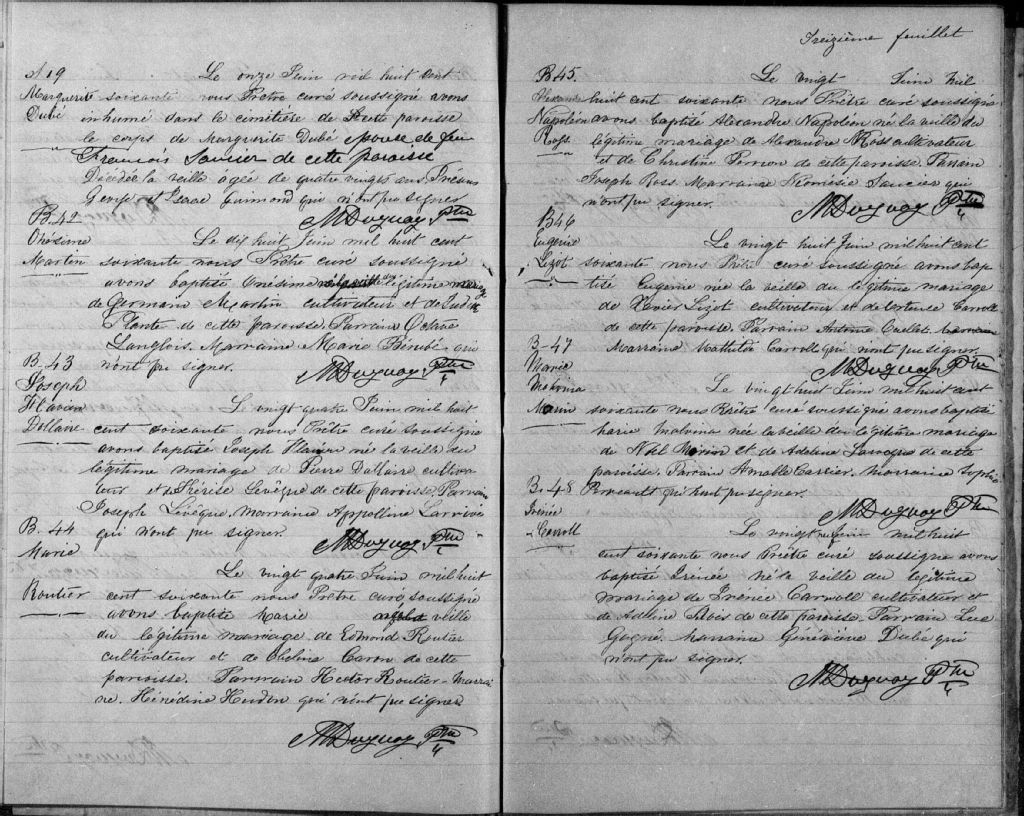 S 19
Le onze Juin mil huit cent
Marguerite soixante nous Prêtre curé soussigné avons
Dubé inhumé dans le cimetière de cette paroisse
le corps de Marguerite Dubé épouse de feu
Francois Saucier de cette paroisse
Décédée la veille agée de quatre vingts ans. Présans
George et Isaac Guimond qui n'ont pu signer
MDuguay Ptre
B. 42
Onésime Le dix huit Juin mil huit cent
Martin soixante nous Prêtre curé soussigné
avons baptisé Onésime légitime mariage
de Germain Martin cultivateur et de
Plante de cette paroisse. Parrain Octave
Langlois. Marraine Marie Bérubé qui
n'ont pu signer.
MDuguay Ptre
B- 43
Joseph
Flavien Le vingt quatre Juin mil huit
Dallaire cent soixante nous Prêtre curé soussigné
avons baptisé Joseph Flavien né la veille du
légitime mariage de Pierre Dallaire cultiva-
teur et de Thérise Levêque de cette paroisse. Parrain
Joseph Levêque. Marraine Appolline Larrivée
qui n'ont pu signer.
MDuguay Ptre
B. 44
Marie Le vingt quatre Juin mil huit
Routier cent soixante nous Prêtre curé soussigné
avons baptisé Marie née la veille
du légitime mariage de Edmond Routier
cultivateur et de Caron de cette
paroisse. Parrain Hector Routier- Marrai-
ne. Hénédine Hudon qui n'ont pu signer
MDuguay Ptre
Treizième feuillet
B. 45.
Le vingt Juin mil
Alexandre huit cent soixante nous Prêtre curé soussigné
Napoléon avons baptisé Alexandre Napoléon né la veille du
Ross. légitime mariage de Alexandre Ross cultivateur
et de Christine de cette paroisse. Parrain
Joseph Ross. Marraine Saucier qui
n'ont pu signer.
MDuguay Ptre
B 46
Eugénie Le vingt huit Juin mil huit cent
Lizot soixante nous Prêtre curé soussigné avons bap-
tisé Eugénie née la veille du légitime mariage
de Xavier Lizot cultivateur et de Carroll
de cette paroisse. Parrain Antoine Ouellet.
Marraine Mathilde Carroll qui n'ont pu signer.
MDuguay Ptre
B- 47
Marie
Malvina Le vingt huit Juin mil huit cent
Morin soixante nous Prêtre curé soussigné avons baptisé
Marie Malvina née la veille du légitime mariage
de Noël Morin et de Adeline de cette
paroisse. Parrain Amable Cartier. Marraine Sophie
qui n'ont pu signer.
MDuguay Ptre
B. 48
Irénée
Carroll
Le Juin mil huit
cent soixante nous Prêtre curé soussigné avons
baptisé Irénée né la veille du légitime
mariage de Irénée Carroll cultivateur et
de Adeline de cette paroisse. Parrain Luc
Gagné. Marraine Géneviève Dubé qui
n'ont pu signer.
MDuguay Ptre